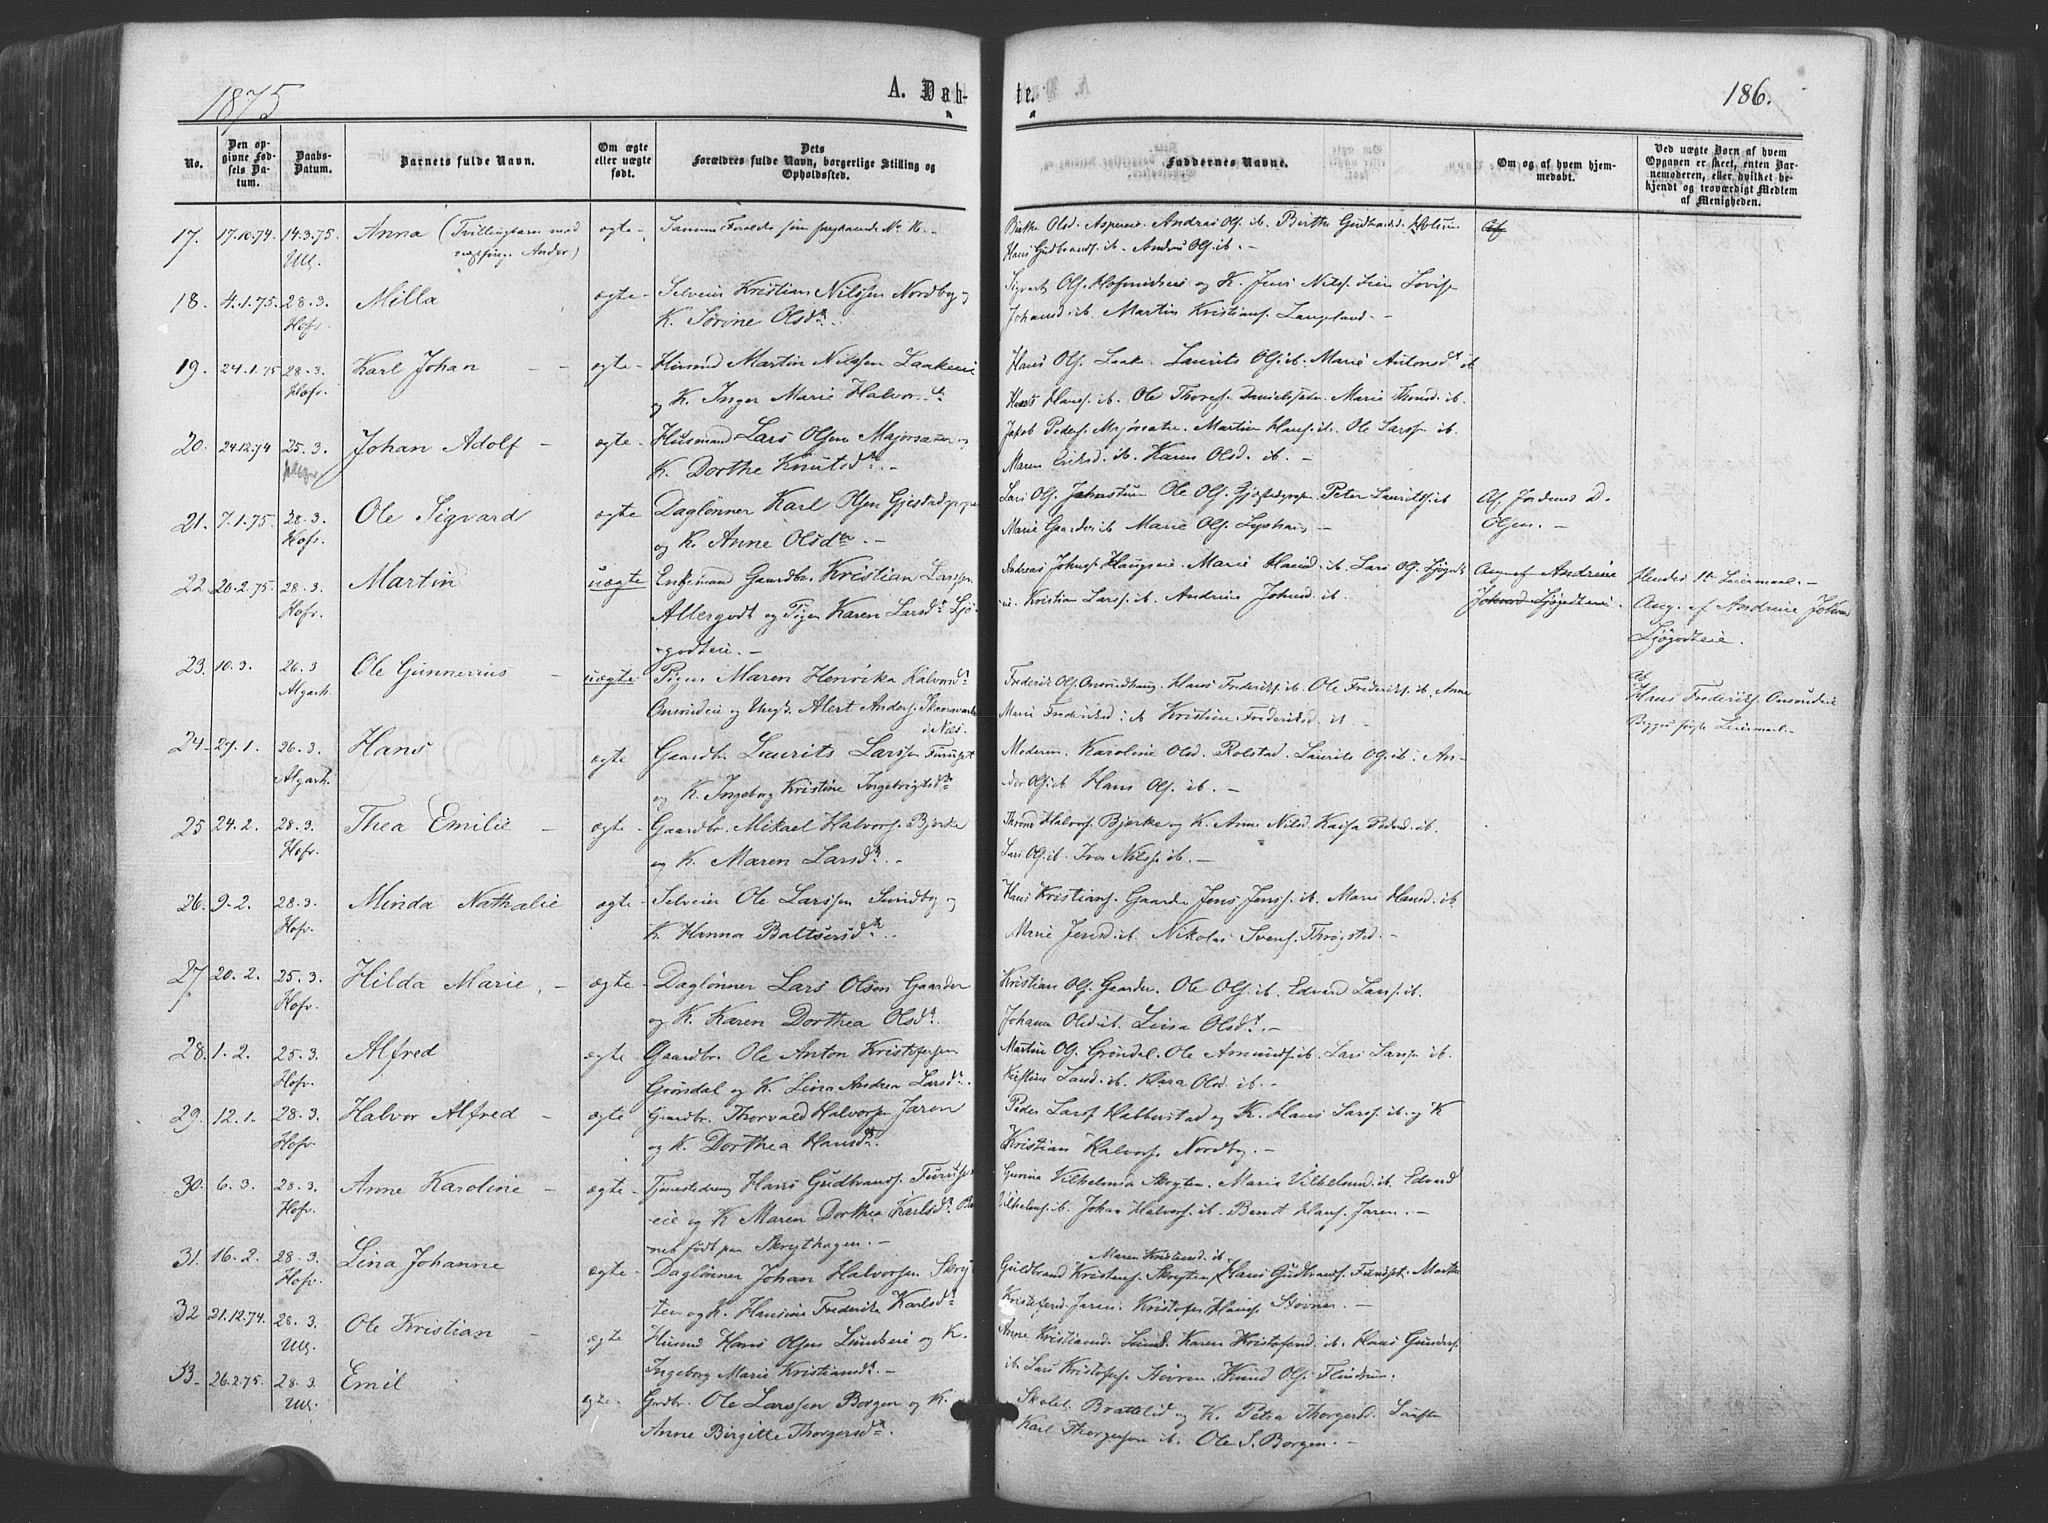 1875
A. Døb-
te.
186.
No.
Den op-
givne Fød-
sels Da-
tum.
Daabs-
Datum.
Barnets fulde Navn.
Om ægte
eller uægte
født.
Dets
Forældres fulde Navn, borgerlige Stilling og
Opholdssted.
Faddernes Navne.
Om og af hvem hjem-
medøbt.
Ved uægte Børn af hvem
Opgaven er skeet, enten Bar-
nemoderen, eller hvilket be-
kjendt og troværdigt Medlem
af Menigheden.
17. 17.10.74. 14.3.75. Anna (Tvillingbarn med ægte - Samme Forældre som No
Ull. Andor)
Birthe Olsd. Aspenes. Andreas Ols. ib. Birthe Gudbrandsd.
Hans Gudbrands. ib. Anders Ols. ib. -
18. 4.1.75. 28.3. Milla ægte - Selveier Kristian Nilssen Nordby og
Hofv. K. Sørine Olsd. -
Sigvart Ols. og K. Jens Nils. Lovise
Johansd. ib. Martin Kristians. Langeland. -
19. 24.1.75 28.3. Karl Johan - - ægte - Husmd Martin Nilssen Laakeeie
Hofv. og K. Inger Marie Halvorsd.
Hans Ols. Laake. Laurits Ols. ib. Marie Antonsd. ib
Hans Hans. ib. Ole Thores. Danielsæter. Marie Thorsd. ib.
20. 24.12.74 25.3. Johan Adolf - ægte - Husmand Lars Olsen Majorsæter og
K. Dorthe Knutsd. -
Jakob Peders. Majorsæter. Martin Hans. ib. Ole Larss. ib.
Maren Eriksd. ib. Karen Olsd. ib. -
21. 7.1.75. 28.3. Ole Sigvard ægte Daglønner Karl Olsen
Hofv. og K. Anne Olsd. -
Lars Ols. Ole Ols. Peter Laurits. ib
Marie Gaarder ib. Marie Ols. -
Af Jordemd.
Olsen. -
22. 20.2.75. 28.3. Martin uægte Enkemand Gaardbr. Kristian Larssen
Hofv. Allergodt og Pigen Karen Larsd. Sjø-
godteie. -
Andreas Johns. Haugseie. Marie Hansd. ib. Lars Ols. Sjøgodt-
eie. Kristian Larss. ib. Andrine Johnsd. ib.
Ang. af Andrine
Johnsd Sjøgodteie.
Hendes 1te Leiermaal. -
Ang. af Andrine Johnsd
Sjøgodteie.
23. 10.3. 26.3 Ole Gunnerius - uægte - Pigen Maren Henrika Halvorsd.
Algarh. og Ungk. Alert Anders.
i Næs.
Frederik Ols. Hans Frederiks. ib. Ole Frederiks. ib. Anne
Marie Frederiksd. ib Kristine Frederiksd. ib. -
Af
Hans Frederiks.
Begges første Leiermaal. -
24. 29.1. 26.3. Hans ægte Gaardbr. Laurits Larssen Furuset
Algarh. og K. Ingeborg Kristine Ingebrigtsd.
Moderen. Karoline Olsd. Rolstad. Laurits Ols. ib. An-
dor Ols. ib Hans Ols. ib. -
25 24.2. 28.3. Thea Emilie - ægte - Gaardbr. Mikael Halvors. Bjerke
Hofv. og K. Maren Larsd. -
Halvors. Bjerke og K. Anne Nilsd. Kaisa Pedersd. ib.
Lars Ols. ib. Iver Nilss. ib. -
26. 9.2. 28.3. Minda Nathalie ægte - Selveier Ole Larssen Sundby og
Hofv. K. Hanna Baltsersd. -
Hans Kristians. Gaarder Jens Jenss. ib. Marie Hansd. ib.
Marie Jensd. ib. Nikolai Svens. Throgsted. -
27 20.2. 25.3. Hilda Marie. - ægte - Daglønner Lars Olsen Gaarder
Hofv. og K. Karen Dorthea Olsd.
Kristian Ols. Gaarder. Ole Ols. ib. Edvard Larss. ib.
Johanne Olsd. ib. Lina Olsd. -
28. 1.2. 25.3. Alfred ægte - Gaardbr. Ole Anton Kristofersen
Hofv. Grønsdal og K. Lina Andrea Larsd.
Martin Ols. Grøndal. Ole Amunds. ib. Lars Larss. ib.
ib. Klara Olsd. ib. -
29. 12.1. 28.3. Halvor Alfred - ægte - Gaardbr. Thorvald Halvorsen Jaren
Hofv. og K. Dorthea Hansd.
Peder Larss Halderstad og K. Hans Larss. ib. og K
Kristian Halvors. Nordby. -
30. 6.3. 28.3. Anne Karoline - ægte - Tjenestedreng Hans Gudbrands. Furuset-
Hofv. eie og K Maren Dorthea Karlsd. Bar-
net født paa Skrythagen. -
Gunine Vilhelmina Skryten. Maria Vilhelmsd. ib. Edvard
Vilhelms. ib. Johan Halvors. ib. Bernt Hans. Jaren. -
31. 16.2. 28.3. Lina Johanne ægte - Daglønner Johan Halvorsen Skry-
Hofv. ten og K. Hansine Frederike Karlsd.
Maren Kristensd. ib.
Guldbrand Kristens. Skryten, Hans Gudbrands. Furuset. Marthe
Kristofersd. Jaren. Kristofer Hans. Støvner. -
32 21.12.74. 28.3. Ole Kristian - ægte Husmd Hans Olsen Lundeeie og K.
Ull. Ingeborg Marie Kristiansd. -
Anne Kristiansd. Lund. Karen Kristofersd. ib. Hans Gunders.
ib. Lars Kristofers. Støvren. Knud Ols. Flindrum.
33. 26.2.75. 28.3. Emil ægte - Grdbr. Ole Larssen Borgen og K.
Ull. Anne Birgitte Thorgersd. -
Skolel. Brattelid og K. Petra Thorgersd.
Karl Thorgersen ib. Ole S. Borgen. -